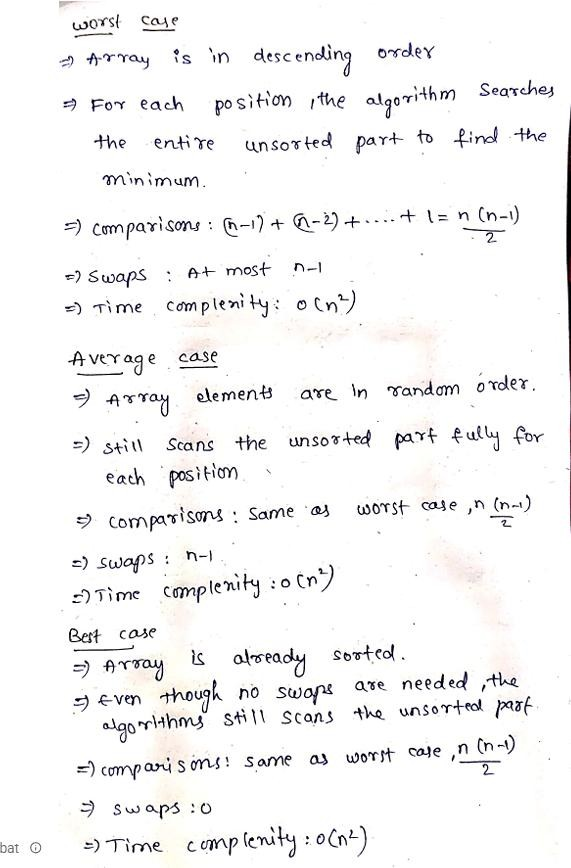 worst case
⇒ Array is in descending order
⇒ For each position, the algorithm Searches
the entire unsorted part to find the
minimum.
⇒ comparisons : (n-1) + (n-2) + .... + 1 = n(n-1)/2
⇒ Swaps : At most n-1
⇒ Time complenity : o(n²)
Average case
⇒ Array elements are in random order.
⇒ still Scans the unsorted part fully for
each position
⇒ comparisons : Same as worst case, n(n-1)/2
⇒ swaps : n-1
⇒ Time complenity : o(n²)
Best case
⇒ Array is already sorted.
⇒ Even though no swaps are needed, the
algorithms still scans the unsorted part
⇒ comparisons: same as worst case, n(n-1)/2
⇒ swaps : 0
⇒ Time complenity : o(n²)
bat